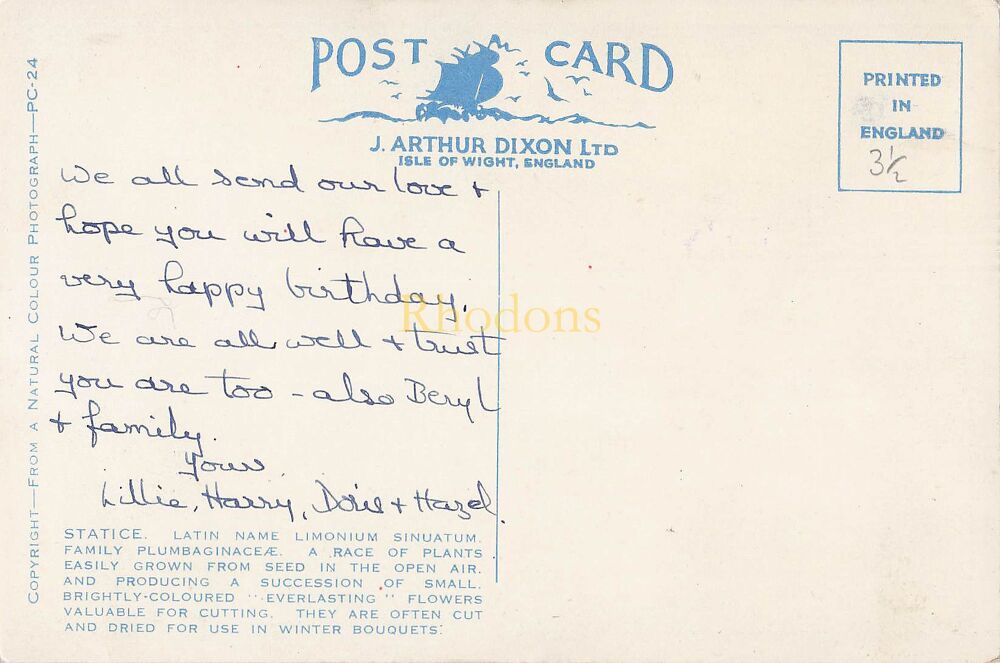 POST CARD
J. ARTHUR DIXON LTD
ISLE OF WIGHT, ENGLAND
PRINTED
IN
ENGLAND
3½
COPYRIGHT—FROM A NATURAL COLOUR PHOTOGRAPH—PC-24
We all send our love +
hope you will have a
very happy birthday.
We are all well + trust
you are too - also Beryl
+ family.
Yours
Lillie, Harry, Doris + Hazel.
Rhodons
STATICE. LATIN NAME LIMONIUM SINUATUM.
FAMILY PLUMBAGINACEÆ. A RACE OF PLANTS
EASILY GROWN FROM SEED IN THE OPEN AIR.
AND PRODUCING A SUCCESSION OF SMALL.
BRIGHTLY-COLOURED "EVERLASTING" FLOWERS
VALUABLE FOR CUTTING. THEY ARE OFTEN CUT
AND DRIED FOR USE IN WINTER BOUQUETS.